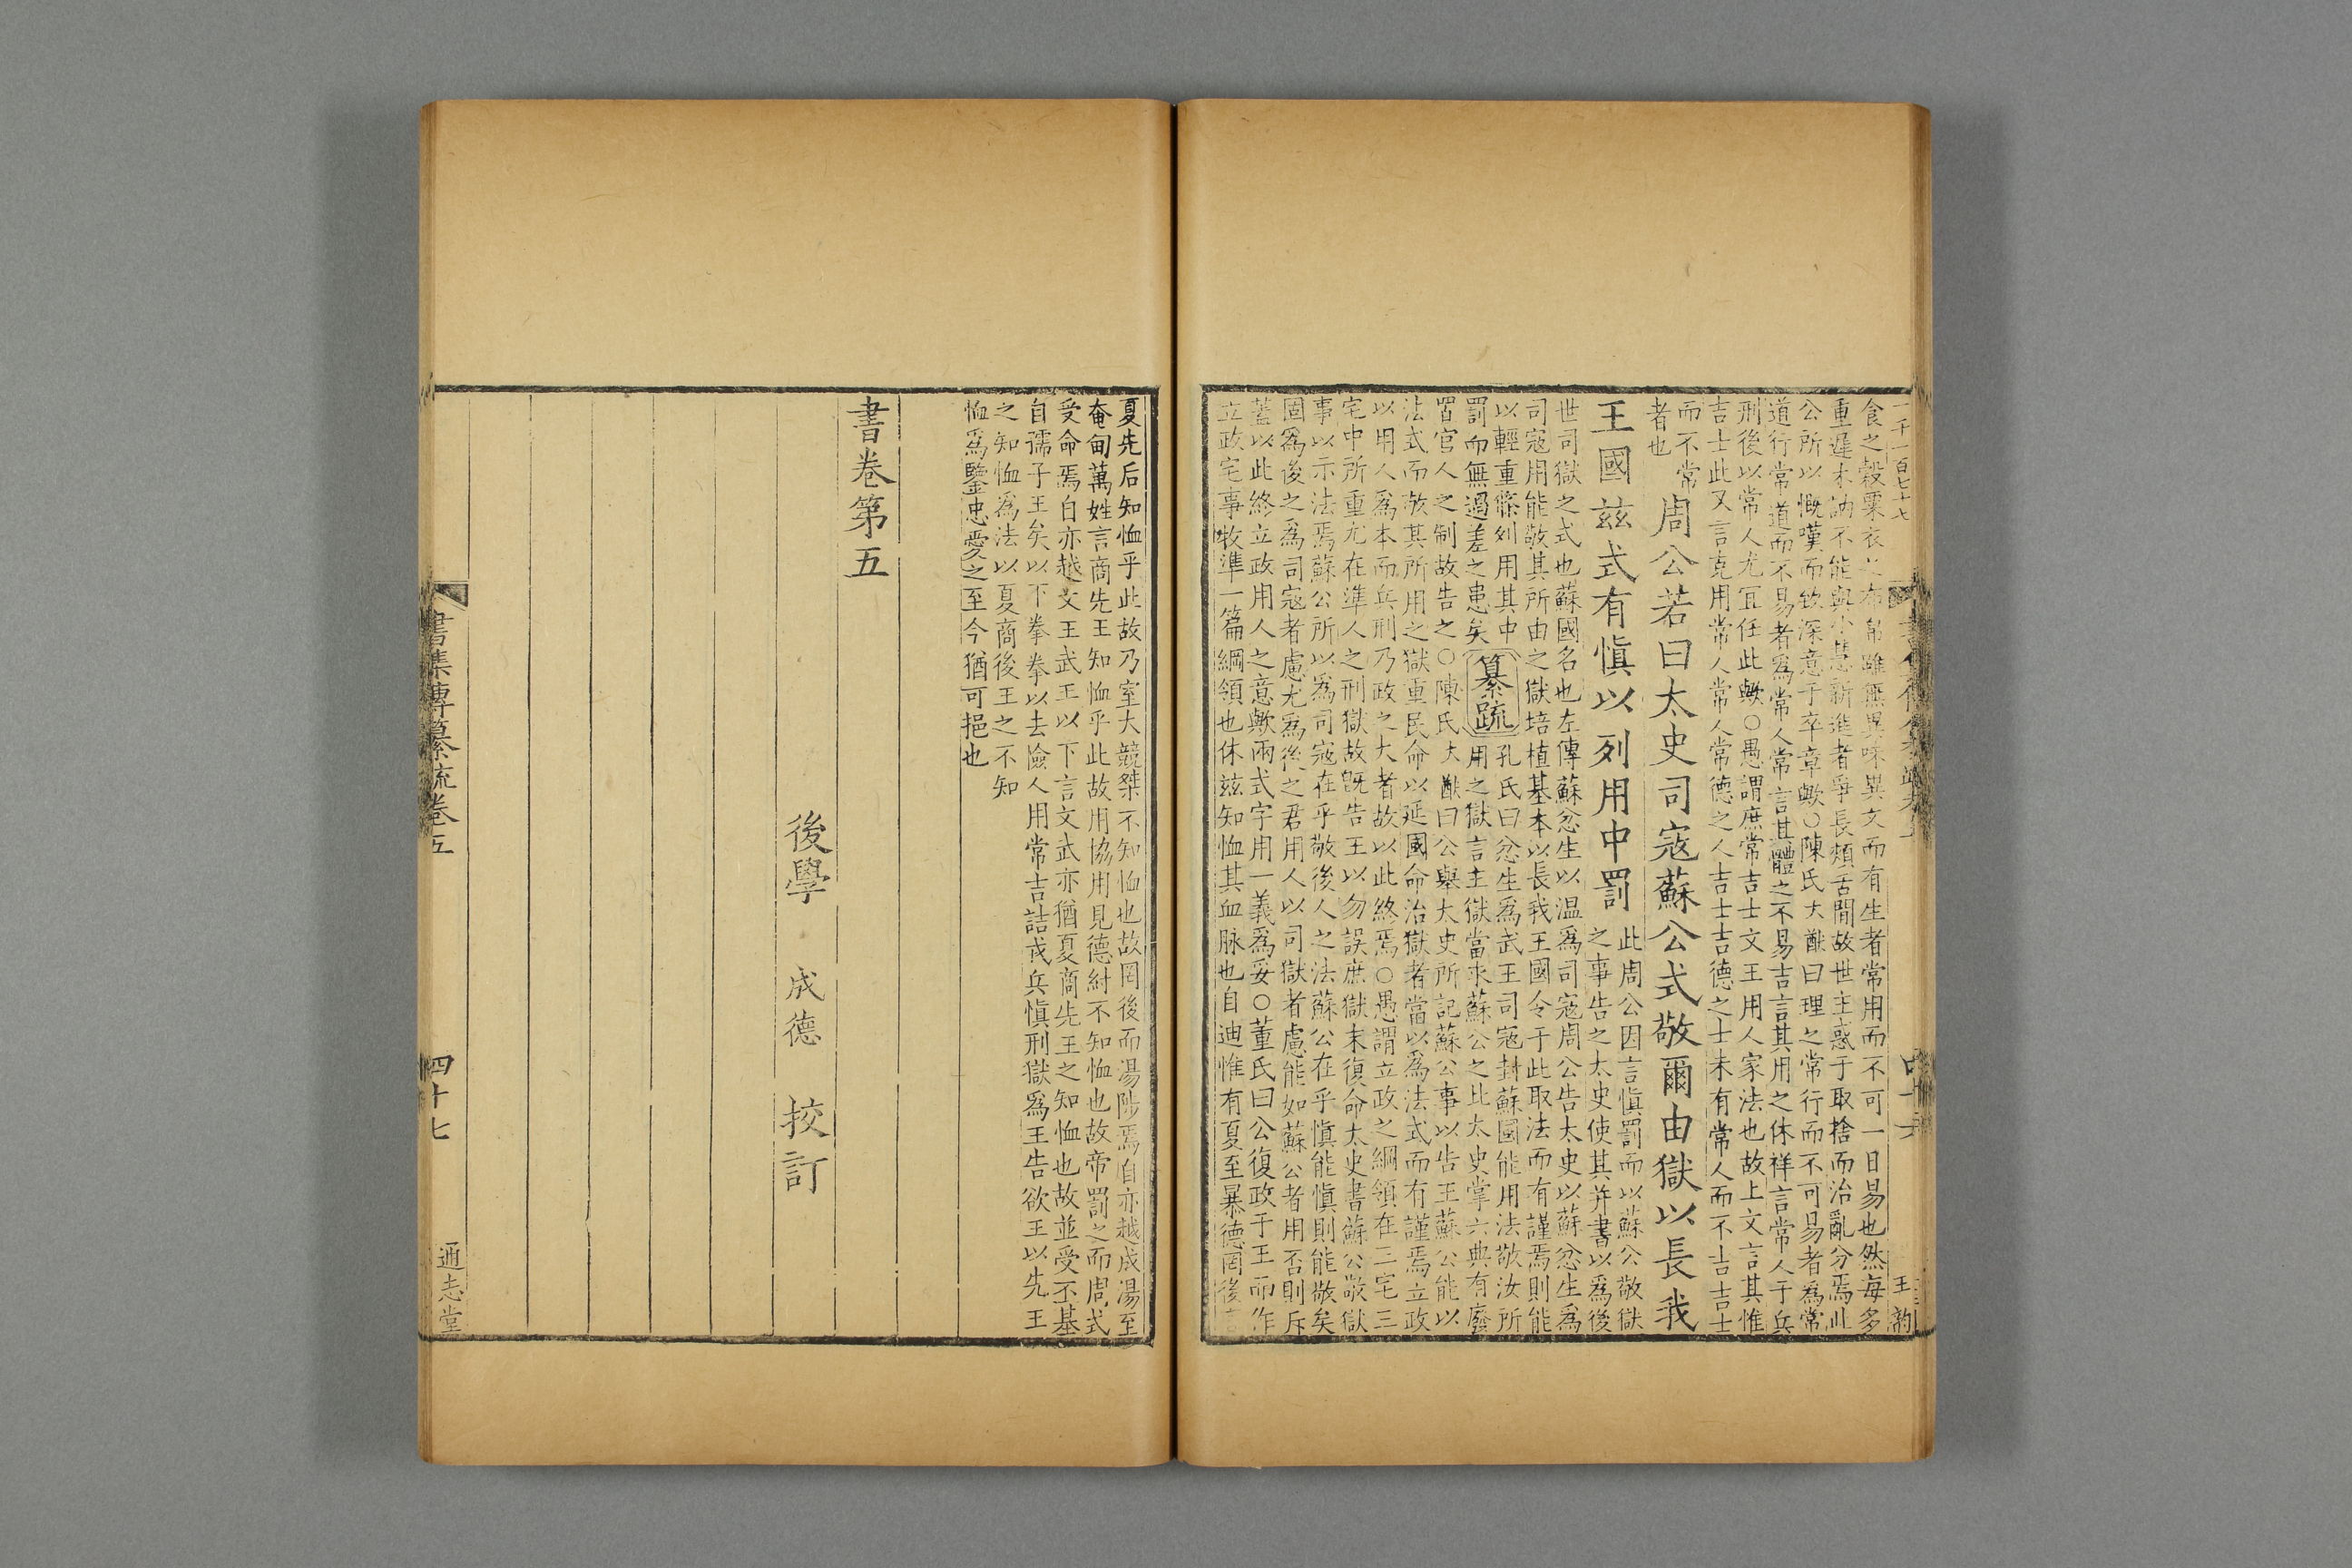 一千一百七十七
王韵
食之穀粟衣之布帛雖無異味異文而有生者常用而不可一日易也然每多
重遲木訥不能與小慧新進者爭長頰舌間故世主惑于取捨而治亂分焉此
公所以慨嘆而致深意于卒章歟○陳氏大猷曰理之常行而不可易者爲常
道行常道而不易者爲常人常言其體之不易吉言其用之休祥言常人于兵
刑後以常人尤宜任此歟○愚謂庶常吉士文王用人家法也故上文言其惟
吉士此又言克用常人常人常德之人吉士吉德之士未有常人而不吉吉士
而不常
者也
周公若曰太史司寇蘇公式敬爾由獄以長我
王國兹式有愼以列用中罰
此周公因言愼罰而以蘇公敬獄
之事告之太史使其并書以爲後
世司獄之式也蘇國名也左傳蘇忿生以温爲司寇周公告太史以蘇忿生爲
司寇用能敬其所由之獄培植基本以長我王國令于此取法而有謹焉則能
以輕重條列用其中
罰而無過差之患矣
纂疏
孔氏曰忿生爲武王司寇封蘇國能用法敬汝所
用之獄言主獄當求蘇公之比太史掌六典有廢
置官人之制故告之○陳氏大猷曰公舉太史所記蘇公事以告王蘇公能以
法式而敬其所用之獄重民命以延國命治獄者當以爲法式而有謹焉立政
以用人爲本而兵刑乃政之大者故以此終焉○愚謂立政之綱領在三宅三
宅中所重尤在準人之刑獄故旣告王以勿誤庶獄末復命太史書蘇公敬獄
事以示法焉蘇公所以爲司寇在乎敬後人之法蘇公在乎愼能愼則能敬矣
固爲後之爲司寇者慮尤爲後之君用人以司獄者慮能如蘇公者用否則斥
蓋以此終立政用人之意歟兩式字用一義爲妥○董氏曰公復政于王而作
立政宅事牧準一篇綱領也休兹知恤其血脉也自迪惟有夏至暴德罔後言
夏先后知恤乎此故乃室大競桀不知恤也故罔後而湯陟焉自亦越成湯至
奄甸萬姓言商先王知恤乎此故用協用見德紂不知恤也故帝罰之而周式
受命焉自亦越文王武王以下言文武亦猶夏商先王之知恤也故並受丕基
自孺子王矣以下拳拳以去憸人用常吉詰戎兵愼刑獄爲王告欲王以先王
之知恤爲法以夏商後王之不知
恤爲鑒忠愛之至今猶可挹也
書卷第五
後學 成德 挍訂
書集傳纂疏卷五
四十七
通志堂